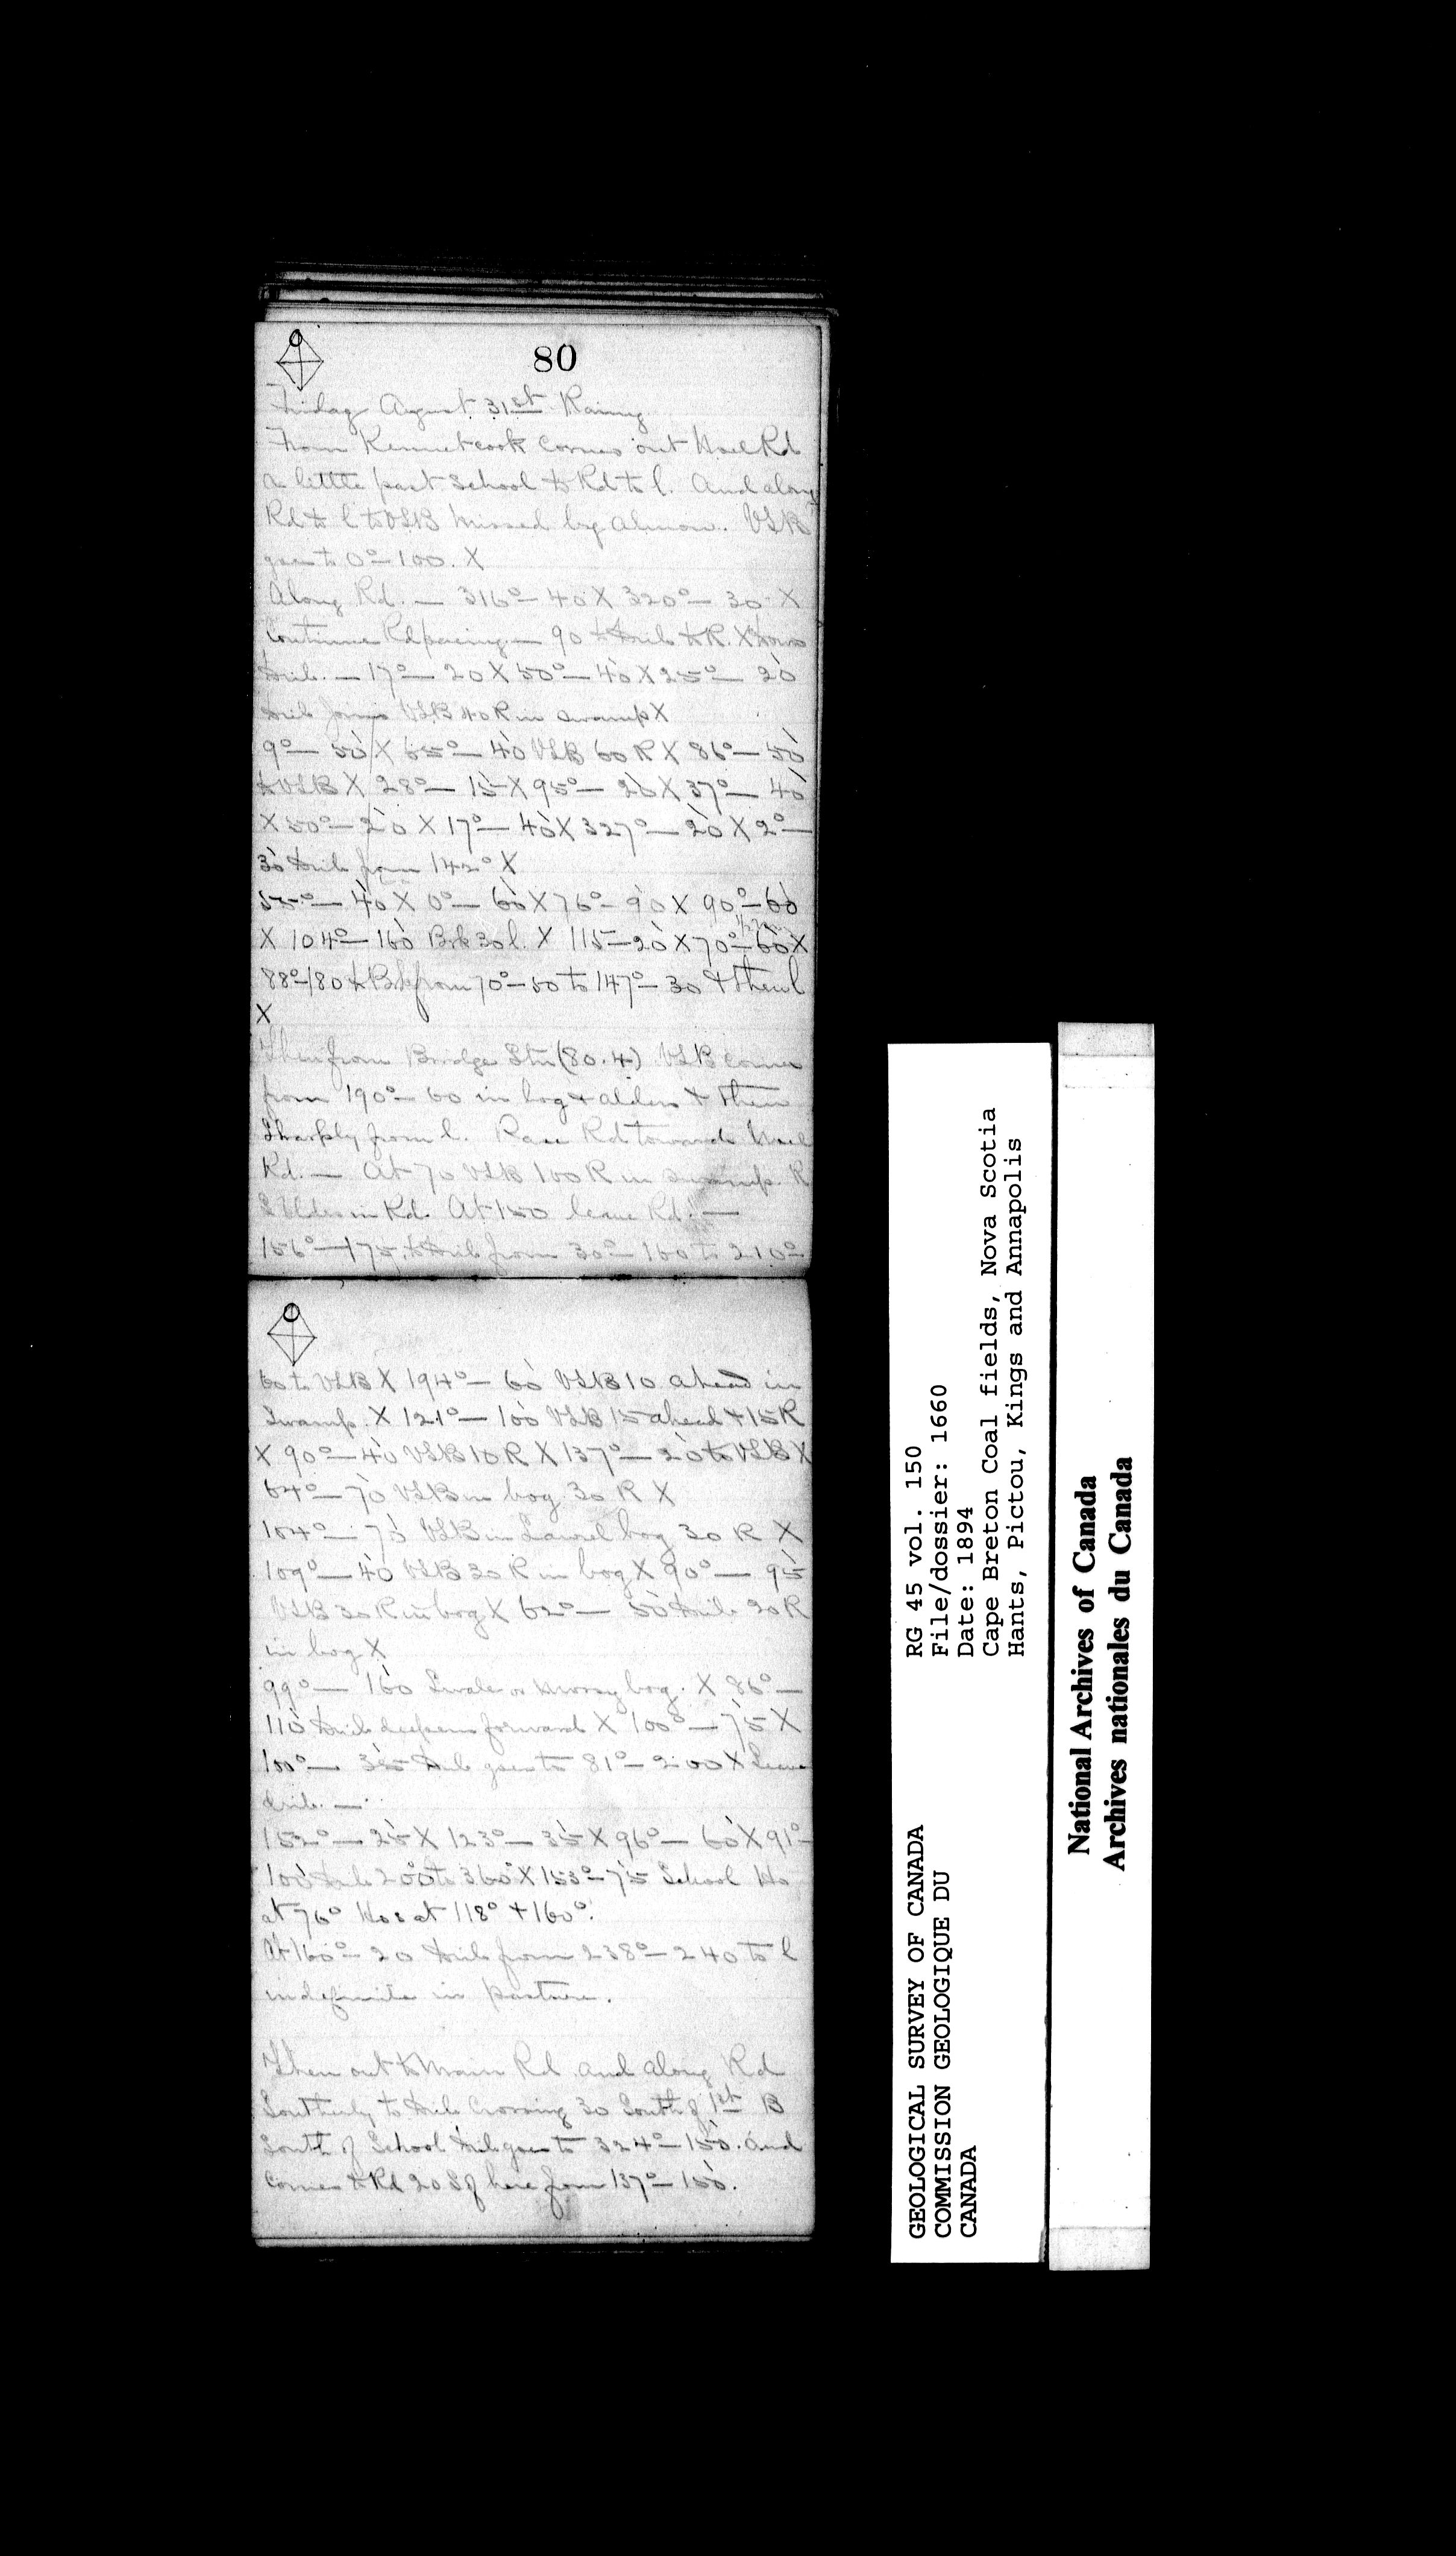 80
Friday August 31st Rainy
From Kennetcook Corner out Noel Rd
a little past School to Rd to l. And along
Rd to l to VSB missed by Almon. VSB
goes to 0°—100. X
Along Rd. — 316°— 40 X 320°— 30 X
Continue Rd pacing — 90 to to R. X
— 17°— 20 X 50°— 40 X 25°— 20
joins VSB 40 R in swamp X
9°— 50 X 65°— 40 VSB 60 R X 86°— 50
to VSB X 28°— 15 X 95°— 20 X 37°— 40
X 50°— 20 X 17°— 40 X 327°— 20 X 2°—
30 from 142° X
55°— 40 X 0°— 60 X 76°— 90 X 90°—60
X 104°— 160 Brk 30 l. X 115—20 X 70°—60 X
88°—180 to Brk from 70°—50 to 147°— 30 + then l
X
Then from Bridge Stn (80.4) VSB comes
from 190°— 60 in bog + alders + then
Sharply from l. Pace Rd towards Noel
Rd. — At 70 VSB 100 R in swamp. R
in Rd. At 150 leave Rd: —
156°—175, to from 30°— 160 to 210°—
60 to VSB X 194°— 60 VSB 10 ahead in
Swamp. X 121°— 100 VSB 15 ahead + 15 R
X 90°— 40 VSB 10 R X 137°— 20 to VSB X
64°— 70 VSB in bog 30 R X
104°— 70 VSB in Laurel bog 30 R X
109°— 40 VSB 30 R in bog X 90°— 95
VSB 30 R in bog X 62°— 50 20 R
in bog X
99°— 160 Swale or bog. X 86°—
110 deepens forward X 100°— 75 X
100°— 35 goes to 81°— 200 X Leave
—
152°— 25 X 123°— 35 X 96°— 60 X 91°—
100 200 to 360° X 153°— 75 School Ho
at 76° Hos at 118° + 160°.
At 160°— 20 from 238°— 240 to l
indefinite in pasture.
Then out to Main Rd and along Rd
Southerly to Crossing 30 South of 1st B
South of School goes to 324°— 150. and
comes to Rd 20 S of here from 137°— 150.
RG 45 vol. 150
File/dossier: 1660
Date: 1894
Cape Breton Coal fields, Nova Scotia
Hants, Pictou, Kings and Annapolis
GEOLOGICAL SURVEY OF CANADA
COMMISSION GEOLOGIQUE DU
CANADA
National Archives of Canada
Archives nationales du Canada